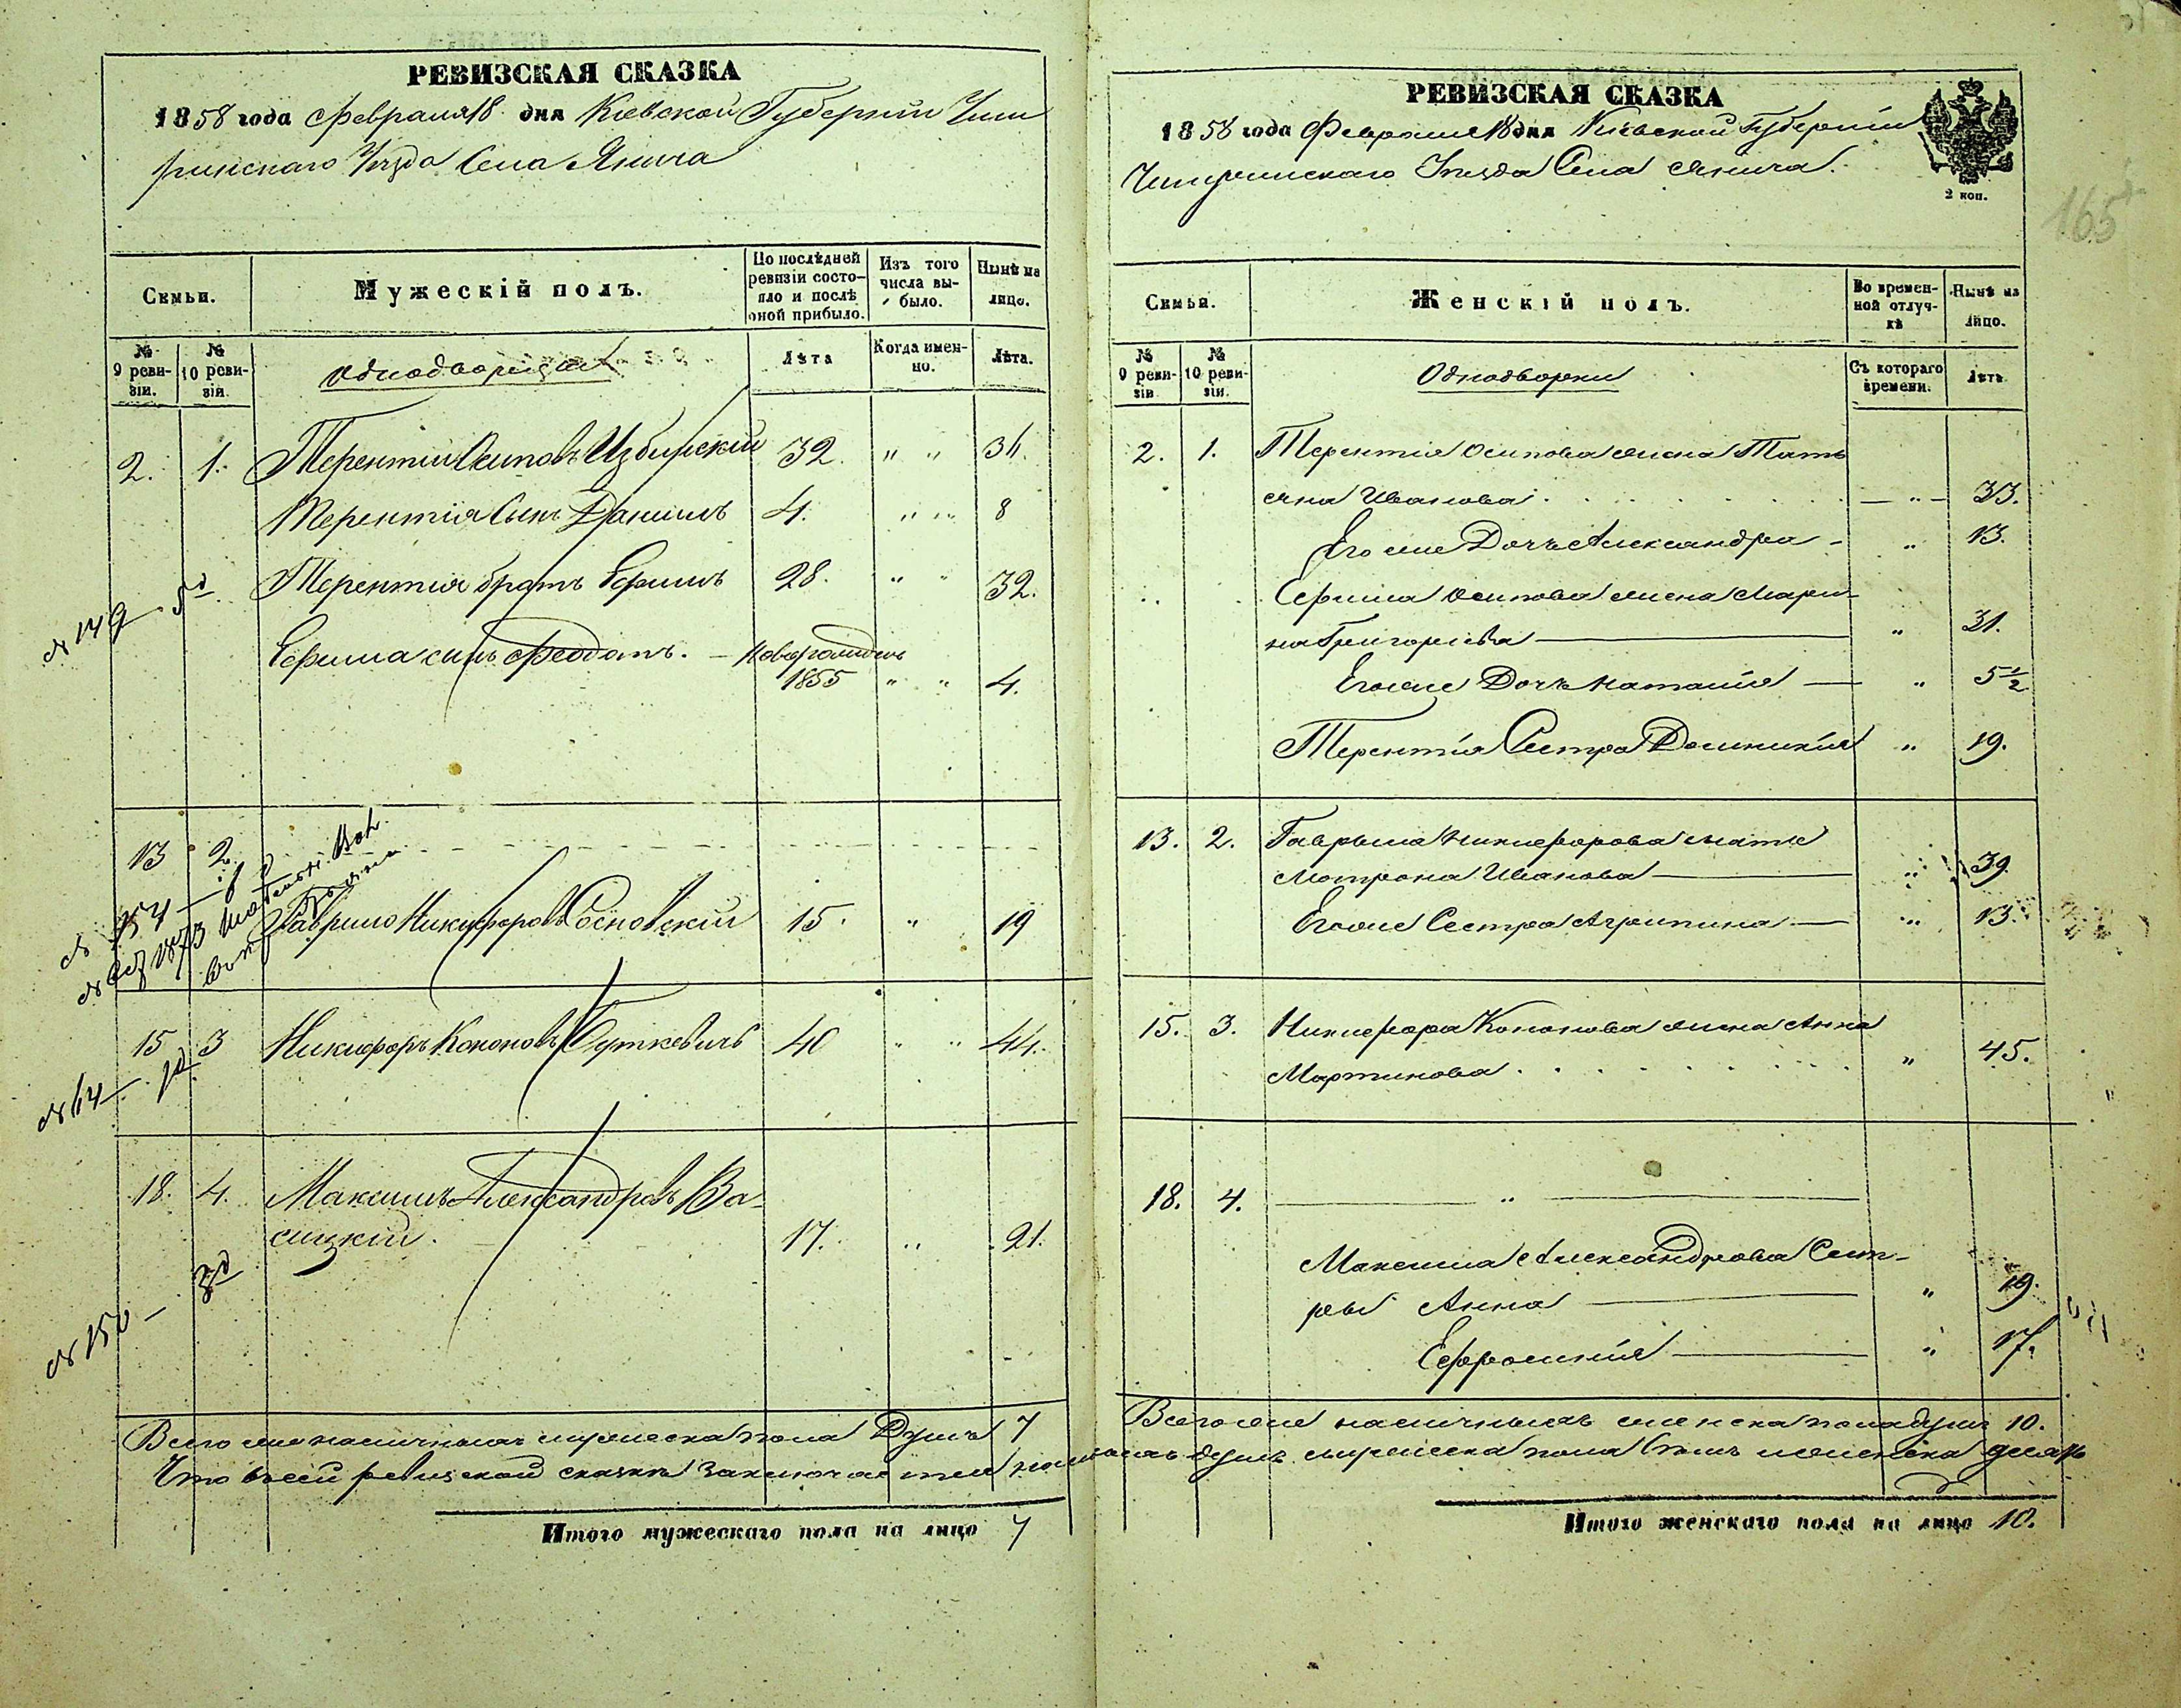 РЕВИЗСКАЯ СКАЗКА
1858 года Февраля 18 дня Кіевской Губерніи Чиги
ринскаго Уѣзда Села
Семьи.
Мужескій полъ.
По послѣдней ревизіи состо-
яло и послѣ
оной прибыло.
Изъ того
числа вы-
было.
Нынѣ на
лицо.
№
9 реви-
зіи.
№
10 реви-
зіи.
Однодворцы
Лѣта
Когда имен-
но.
Лѣта.
2. 1. Терентій Осиповъ Избицкій 32. " " 36.
Терентія Сынъ Даніилъ 4. " " 8
Терентія братъ Ефимъ 28. " " 32.
№ 149
Ефима сынъ Феодотъ. – Новорожден
1855 " " 4.
13 2.
Гаврило Никифоровъ Сосновскій 15. " 19
15 3 Никифоръ Кононовъ Буткевичъ 40 " " 44.
18. 4. Максимъ Александровъ Ва-
сицкій. 17. " 21.
№ 150 – 3д
Всего же наличныхъ мужеска пола Душъ 7
Что въ сей ревизской сказкѣ заключается
Итого мужескаго пола на лицо 7
РЕВИЗСКАЯ СКАЗКА
1858 года Февраля 18 дня Кіевской Губерніи
Чигиринскаго Уѣзда Села
2 коп.
165
Семьи.
Женскій полъ.
Во времен-
ной отлуч-
кѣ
Нынѣ на
лицо.
№
9 реви-
зіи
№
10 реви-
зіи.
Однодворки
Съ котораго
времени.
Лѣтъ
2. 1. Терентія Осипова жена Тать
яна Иванова. — " — 33.
Его же Дочь Александра – " 13.
Ефима Осипова жена Мари-
на Григорьева — " 31.
Его же Дочь Наталія — " 5½
Терентія Сестра Домникія " 19.
13. 2. Гаврыла Никифорова мать
Мотрона Иванова — " 39.
Его же Сестра Агрипина — " 13.
15. 3. Никифора Кононова жена Анна
Мартинова. " 45.
18. 4. — " —
Максима Александрова Сест-
ры Анна — " 19.
Ефросинія — " 17.
Всего же наличныхъ женска пола душъ 10.
душъ мужеска пола женска десять
Итого женскаго пола на лицо 10.